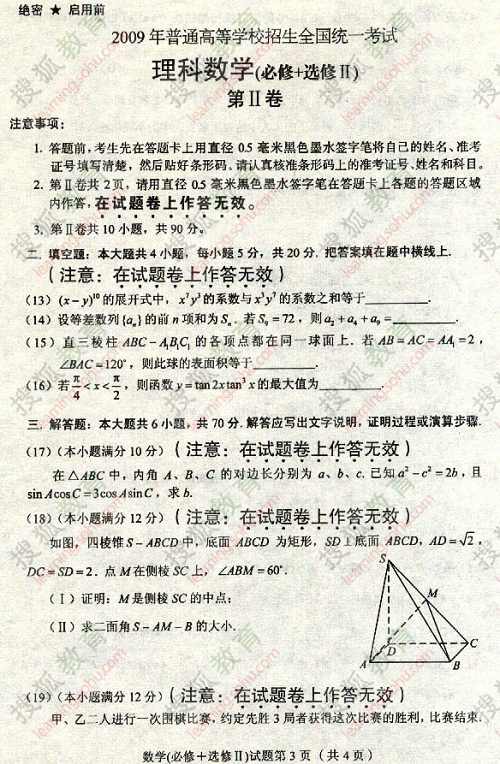 绝密 ★ 启用前
2009 年普通高等学校招生全国统一考试
理科数学(必修+选修Ⅱ)
第Ⅱ卷
注意事项:
1. 答题前,考生先在答题卡上用直径 0.5 毫米黑色墨水签字笔将自己的姓名、准考
证号填写清楚,然后贴好条形码。请认真核准条形码上的准考证号、姓名和科目。
2. 第Ⅱ卷共 2 页,请用直径 0.5 毫米黑色墨水签字笔在答题卡上各题的答题区域
内作答,在试题卷上作答无效。
3. 第Ⅱ卷共 10 小题,共 90 分。
二. 填空题:本大题共 4 小题,每小题 5 分,共 20 分. 把答案填在题中横线上.
(注意:在试题卷上作答无效)
(13) (x−y)¹⁰ 的展开式中,x⁷y³ 的系数与 x³y⁷ 的系数之和等于________.
(14) 设等差数列{aₙ}的前 n 项和为 Sₙ. 若 S₉ = 72,则 a₂ + a₄ + a₉ = ________.
(15) 直三棱柱 ABC − A₁B₁C₁ 的各顶点都在同一球面上. 若 AB = AC = AA₁ = 2,
∠BAC = 120°,则此球的表面积等于________.
(16) 若 π/4 < x < π/2,则函数 y = tan 2x tan³ x 的最大值为________.
三. 解答题:本大题共 6 小题,共 70 分. 解答应写出文字说明,证明过程或演算步骤.
(17)(本小题满分 10 分)(注意:在试题卷上作答无效)
在△ABC 中,内角 A、B、C 的对边长分别为 a、b、c. 已知 a² − c² = 2b,且
sin A cos C = 3cos A sin C,求 b.
(18)(本小题满分 12 分)(注意:在试题卷上作答无效)
如图,四棱锥 S − ABCD 中,底面 ABCD 为矩形,SD⊥底面 ABCD,AD = √2,
DC = SD = 2. 点 M 在侧棱 SC 上,∠ABM = 60°.
(Ⅰ)证明:M 是侧棱 SC 的中点;
(Ⅱ)求二面角 S − AM − B 的大小.
S
M
D
C
A
B
(19)(本小题满分 12 分)(注意:在试题卷上作答无效)
甲、乙二人进行一次围棋比赛,约定先胜 3 局者获得这次比赛的胜利,比赛结束.
数学(必修+选修Ⅱ)试题第 3 页(共 4 页)
搜狐教育
learning.sohu.com